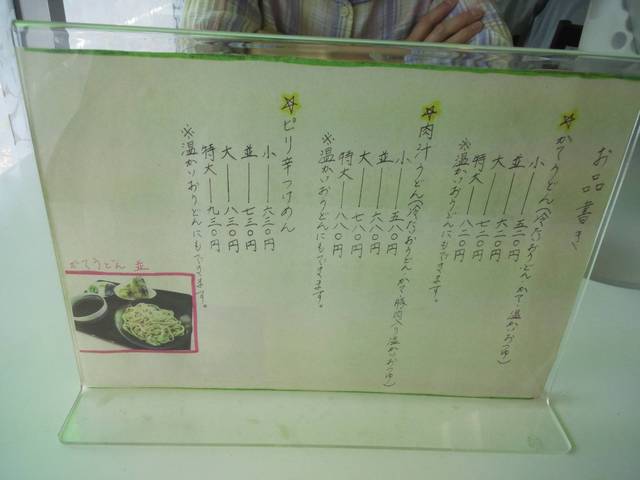 お品書き
☆かてうどん(冷たいおうどん かて 温かいおつゆ)
小――五二〇円
並――六二〇円
大――七二〇円
特大――八二〇円
※温かいおうどんにもできます。
☆肉汁うどん(冷たいおうどん かて 豚肉入り温かいおつゆ)
小――五八〇円
並――六八〇円
大――七八〇円
特大――八八〇円
※温かいおうどんにもできます。
☆ピリ辛つけめん
小――六三〇円
並――七三〇円
大――八三〇円
特大――九三〇円
※温かいおうどんにもできます。
かてうどん 並